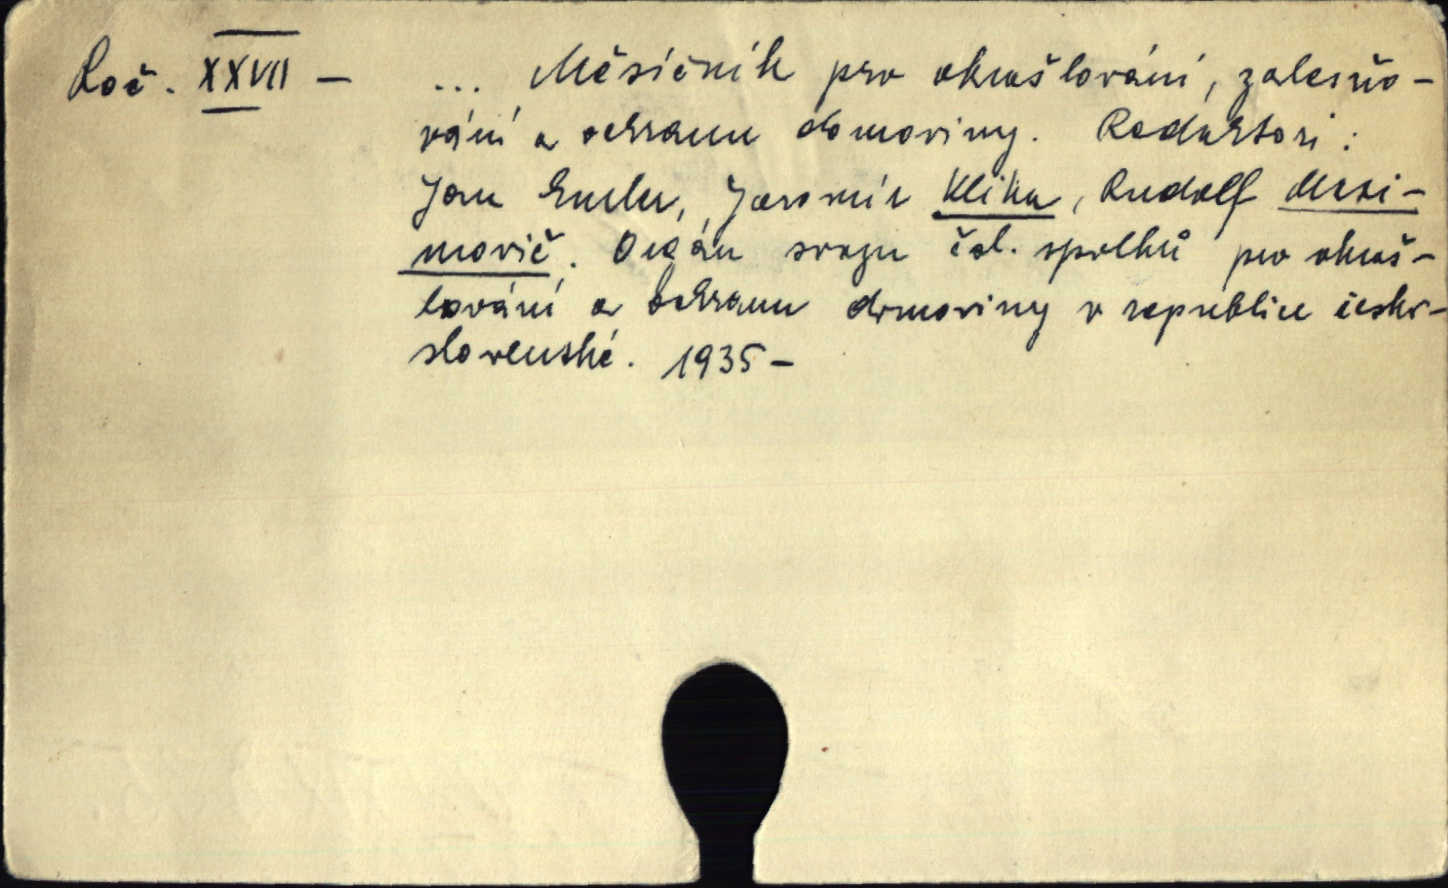 Roč. XXVII – ... Měsíčník pro okrašlování, zalesňo-
vání a ochranu domoviny. Redaktoři:
Jan Emler, Jaromír Klika, Rudolf Maxi-
movič. Orgán svazu čsl. spolků pro okraš-
lování a ochranu domoviny v republice česko-
slovenské. 1935 –